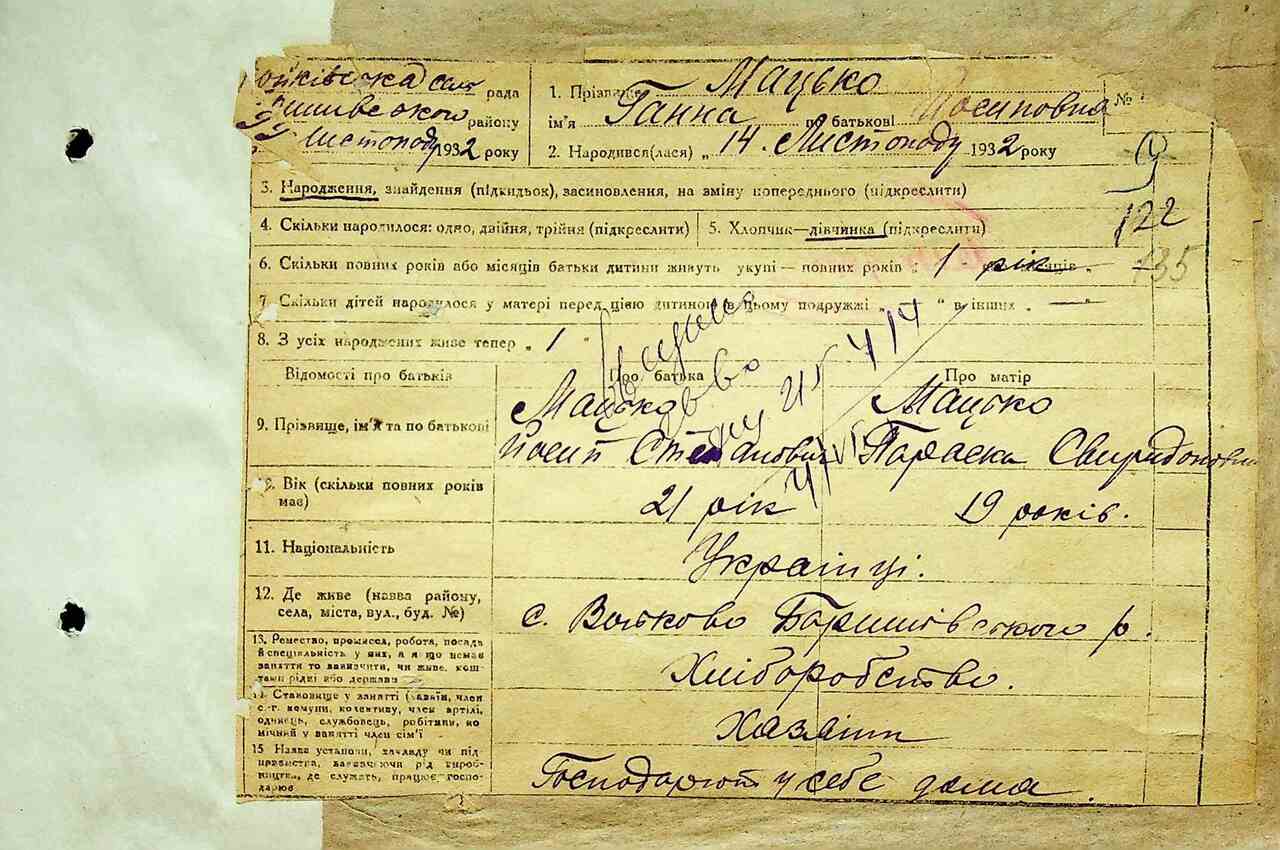 сал рада
району
Листопаду 1932 року
1. Прізвище Мацько
ім'я Ганна по батькові Йосиповна
2. Народився(лася) „ 14. Листопаду 1932 року
№
3. Народження, знайдення (підкидьок), засиновлення, на зміну попереднього (підкреслити)
4. Скільки народилося: одно, двійня, трійня (підкреслити)
5. Хлопчик—дівчинка (підкреслити)
122
135
6. Скільки повних років або місяців батьки дитини живуть укупі — повних років „ 1 рік місяців „
7. Скільки дітей народилося у матері перед цією дитиною в цьому подружжі „ — “ в інших — “
8. З усіх народжених живе тепер „ 1 “
Відомості про батьків
Про батька
Про матір
9. Прізвище, ім'я та по батькові
Мацько
Йосип Степанович
Мацько
Параска Свиридоновна
10. Вік (скільки повних років
має)
21 рік
19 років.
11. Національність
Українці.
12. Де живе (назва району,
села, міста, вул., буд. №)
с. Вольково Баришівського р.
13. Ремество, промисел, робота, посада
й спеціальність у них, а якщо немає
заняття то зазначити, чи живе кош-
тами рідні або держави
Хліборобство.
14. Становище у занятті (хазяїн, член
с.-г. комуни, колективу, член артілі,
одинець, службовець, робітник, по
мічний у занятті член сім'ї
Хазяїн
15 Назва установи, закладу чи під-
приємства, зазначаючи рід вироб-
ництва, де служать, працює, госпо-
дарює
Господарют у себе дома.